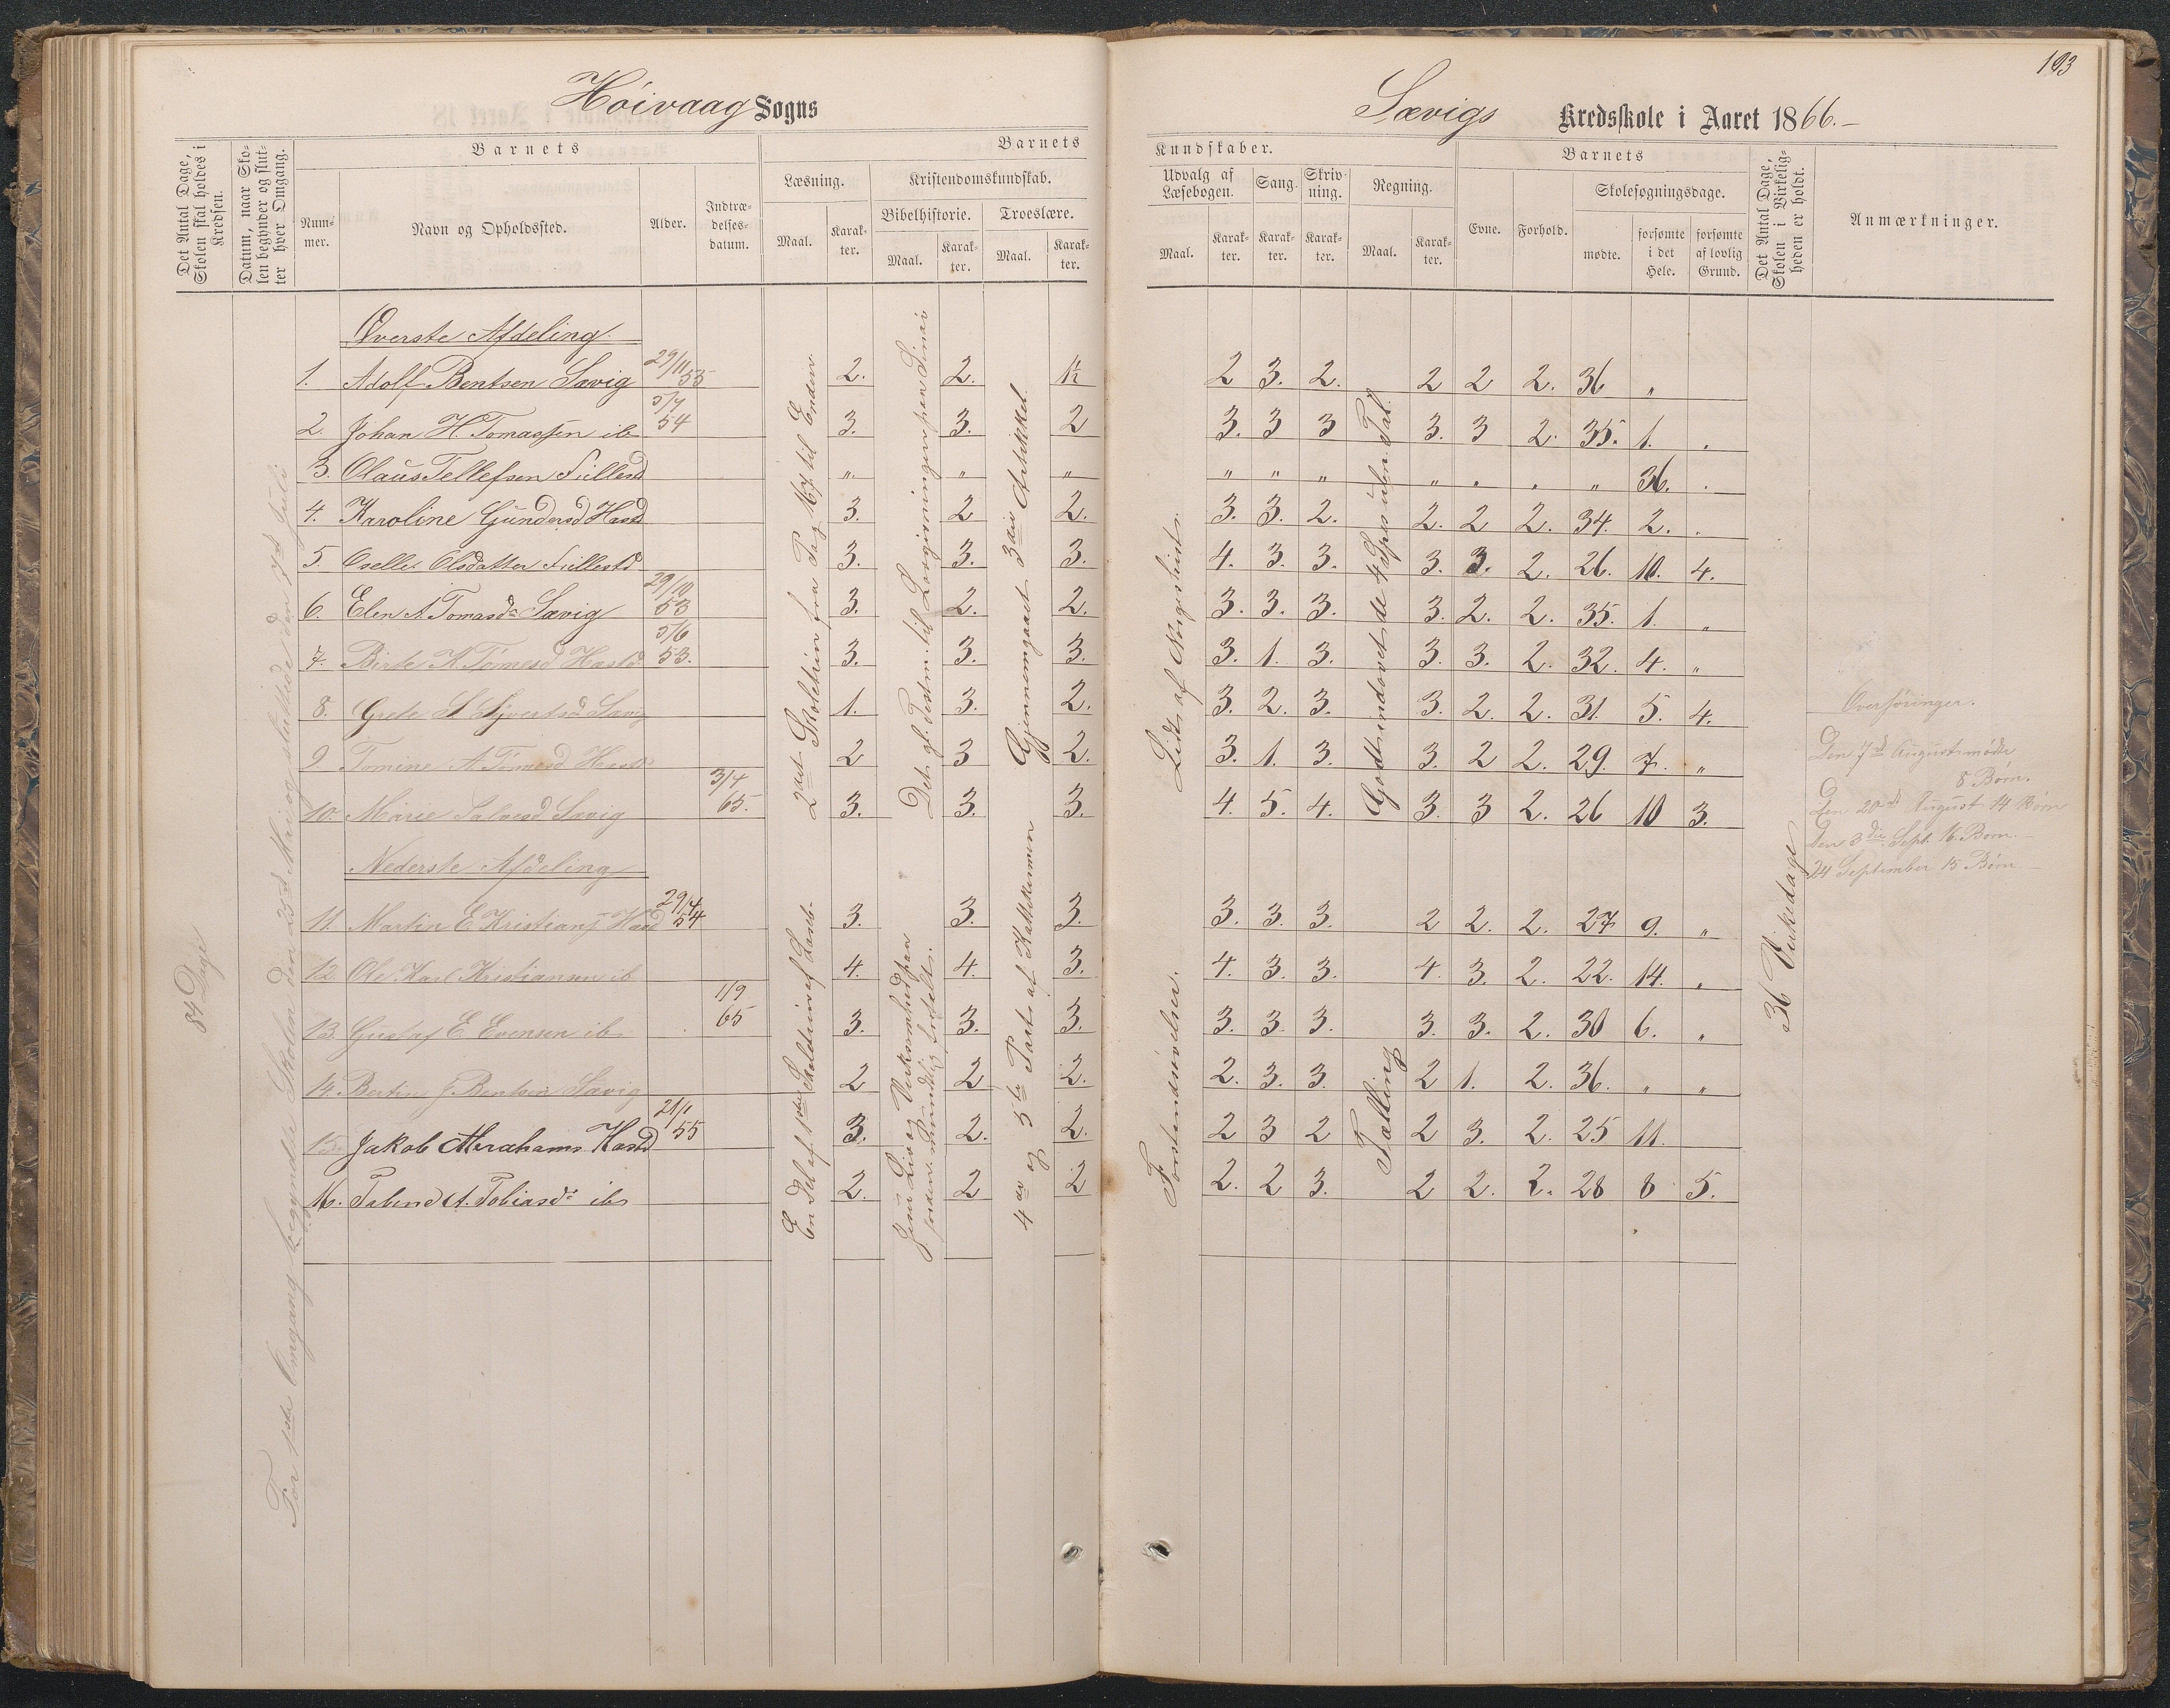 Høivaag Sogns
Sævigs Kredsskole i Aaret 1866.
193
Det Antal Dage, Skolen skal holdes i Kredsen.
Datum, naar Skolen begynder og slutter hver Omgang.
Barnets
Nummer.
Navn og Opholdssted.
Alder.
Indtrædelsesdatum.
Barnets
Læsning.
Maal.
Karakter.
Kristendomskundskab.
Bibelhistorie.
Maal.
Karakter.
Troeslære.
Maal.
Karakter.
Kundskaber.
Udvalg af Læsebogen.
Maal.
Karakter.
Sang.
Karakter.
Skrivning.
Karakter.
Regning.
Maal.
Karakter.
Barnets
Evne.
Forhold.
Skolesøgningsdage.
mødte.
forsømte i det Hele.
forsømte af lovlig Grund.
Det Antal Dage, Skolen i Virkeligheden er holdt.
Anmærkninger.
84 Dage
For 1ste Omgang begyndte Skolen den 25d Mai og sluttede den 7d Juli
Øverste Afdeling.
1. Adolf Bentsen Sævig 29/11 55 2. 2. 1½ 2 3. 2. 2 2 2. 36 „
2. Johan H. Tomassen ib 5/7 54 3. 3. 2 3. 3 3 3. 3 2. 35. 1. „
3. Olaus Tellefsen „ „ „ „ „ „ „ „ „ „ 36. „
4. Karoline Gundersd 3. 2 2. 3. 3. 2. 2. 2 2. 34. 2. „
5. Olsdatter 3. 3. 3. 4. 3. 3. 3. 3. 2. 26. 10. 4.
6. Elen A. Tomasd Sævig 29/10 53 3. 2. 2. 3. 3. 3. 3. 2. 2. 35. 1. „
7. Birte K. 5/6 53. 3. 3. 3. 3. 1. 3. 3. 3. 2. 32. 4. „
8. Grete S. Sævig 1. 3. 2. 3. 2. 3. 3. 2. 2. 31. 5. 4.
9 Tomine A 2 3 2. 3. 1. 3. 3. 2 2. 29. 7. „
10. Marie Salvesd Sævig 3/4 65. 3. 3. 3. 4. 5. 4. 3. 3 2. 26 10 3.
2det Skoletrin fra Pag 167 til Enden
Det gl. Testm. til Lovgivningen paa Sinai
Gjennemgaaet 3die Artikkel
Lidt af Norgeshist.
Godt indøvet de 4 Spes uben. Tal.
Nederste Afdeling
11. Martin E Kristians 29/4 54 3. 3. 3. 3. 3. 3. 2 2. 2. 27 9. „
12. Ole Karl Kristiansen ib 4. 4. 3. 4. 3. 3. 4. 3. 2. 22. 14. „
13. Gustaf E. Evensen ib 1/9 65 3. 3. 3. 3. 3. 3. 3. 3. 2. 30 6. „
14. Bertine J. Bentsen Sævig 2 2 2. 2. 3. 3. 2 1. 2. 36. „ „
15. Jakob Abrahams 21/1 55 3. 2. 2. 2 3 2 2 3. 2. 25 11.
16. A. Tobiasdr ib 2. 2 2 2. 2 3. 2 2. 2. 28 8 5.
En Del af 1ste Skoletrin af Læseb.
Jesu Liv og Virksomhed paa Jorden mundtlig fortalt.
4de og 5te Part af Katekismen
Forstandsøvelser.
Tælling
36 Virkedage
Overføringer.
Den 7d August mødte
8 Børn.
Den 20d August 14 Børn
Den 3die Sept. 16 Børn.
24 September 15 Børn